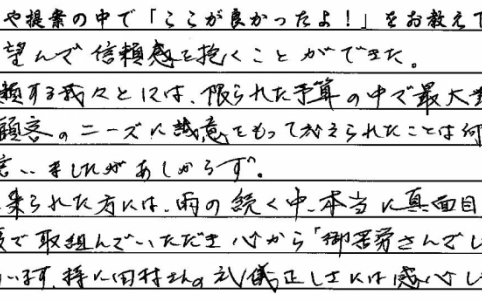 や提案の中で「ここが良かったよ！」をお教えて
望んで信頼感を抱くことができた。
頼する我々としては、限られた予算の中で最大
顧客のニーズに誠意をもって応えられたことは何
言いましたがあしからず。
来られた方には、雨の続く中、本当に真面目
で取組んでいただき心から「御苦労さんでし
います。特に田村さんの礼儀正しさには感心し